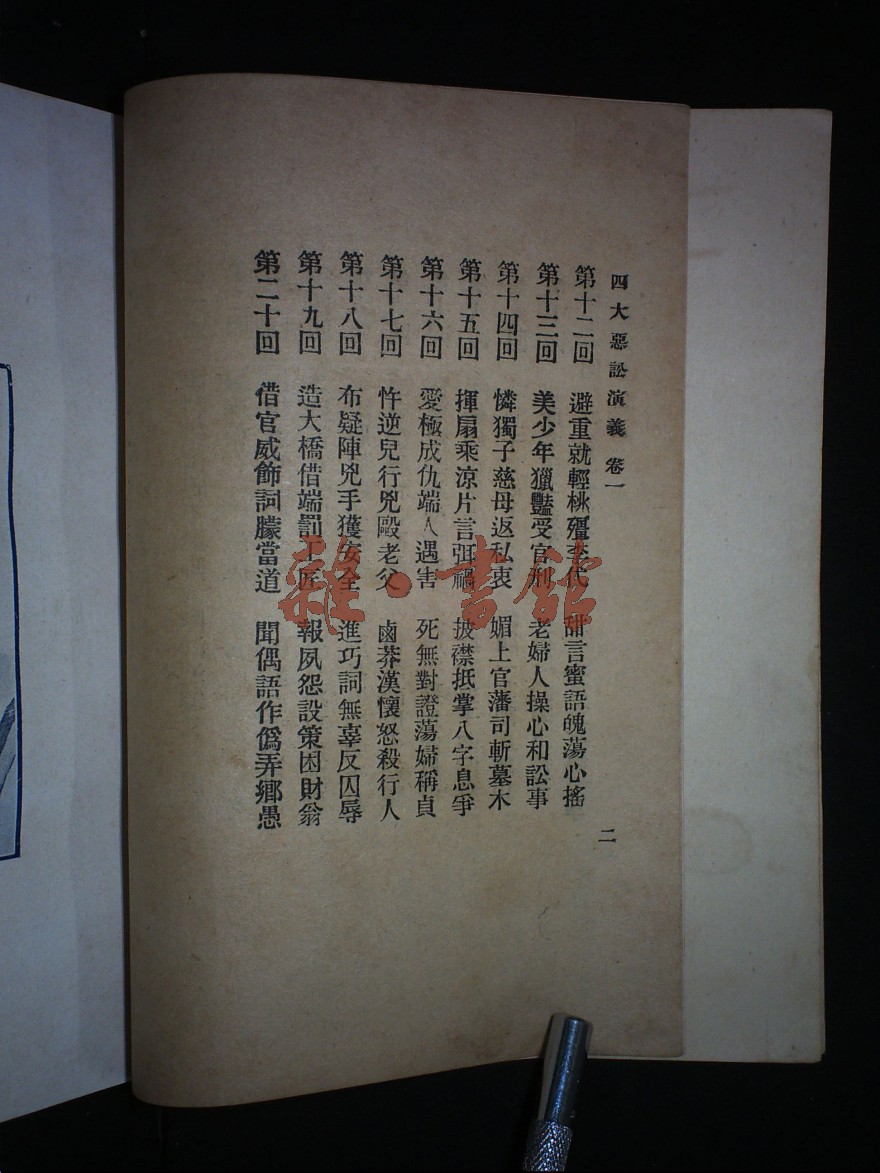 四大惡訟演義 卷一
第十二回 避重就輕桃殭李代 甜言蜜語魄蕩心搖
第十三回 美少年獵豔受官刑 老婦人操心和訟事
第十四回 憐獨子慈母返私衷 媚上官藩司斬墓木
第十五回 揮扇乘涼片言弭禍 披襟抵掌八字息爭
第十六回 愛極成仇端人遇害 死無對證蕩婦稱貞
第十七回 忤逆兒行兇毆老父 鹵莽漢懷怒殺行人
第十八回 布疑陣兇手獲安全 進巧詞無辜反囚辱
第十九回 造大橋借端罰工匠 報夙怨設策困財翁
第二十回 借官威飾詞朦當道 聞偶語作僞弄鄉愚
二
雜·書館